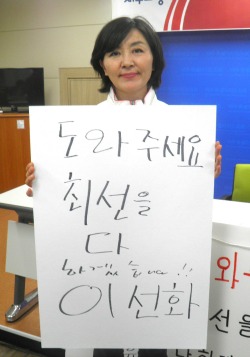 도와주세요
최선을
다
하겠습니다!!
이선화
와
을